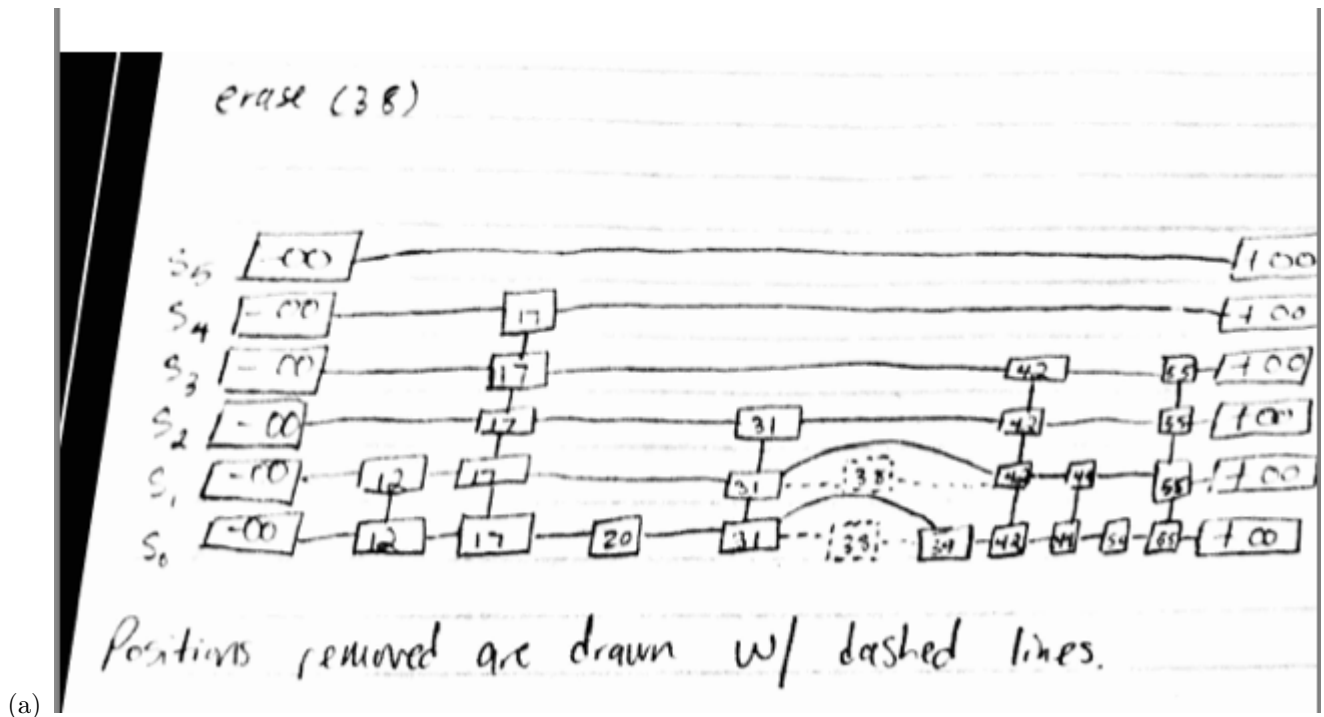 erase (38)
S5 -∞ +∞
S4 -∞ 17 +∞
S3 -∞ 17 42 55 +∞
S2 -∞ 17 31 42 55 +∞
S1 -∞ 12 17 31 38 42 44 55 +∞
S0 -∞ 12 17 20 31 38 39 42 44 50 55 +∞
Positions removed are drawn w/ dashed lines.
(a)